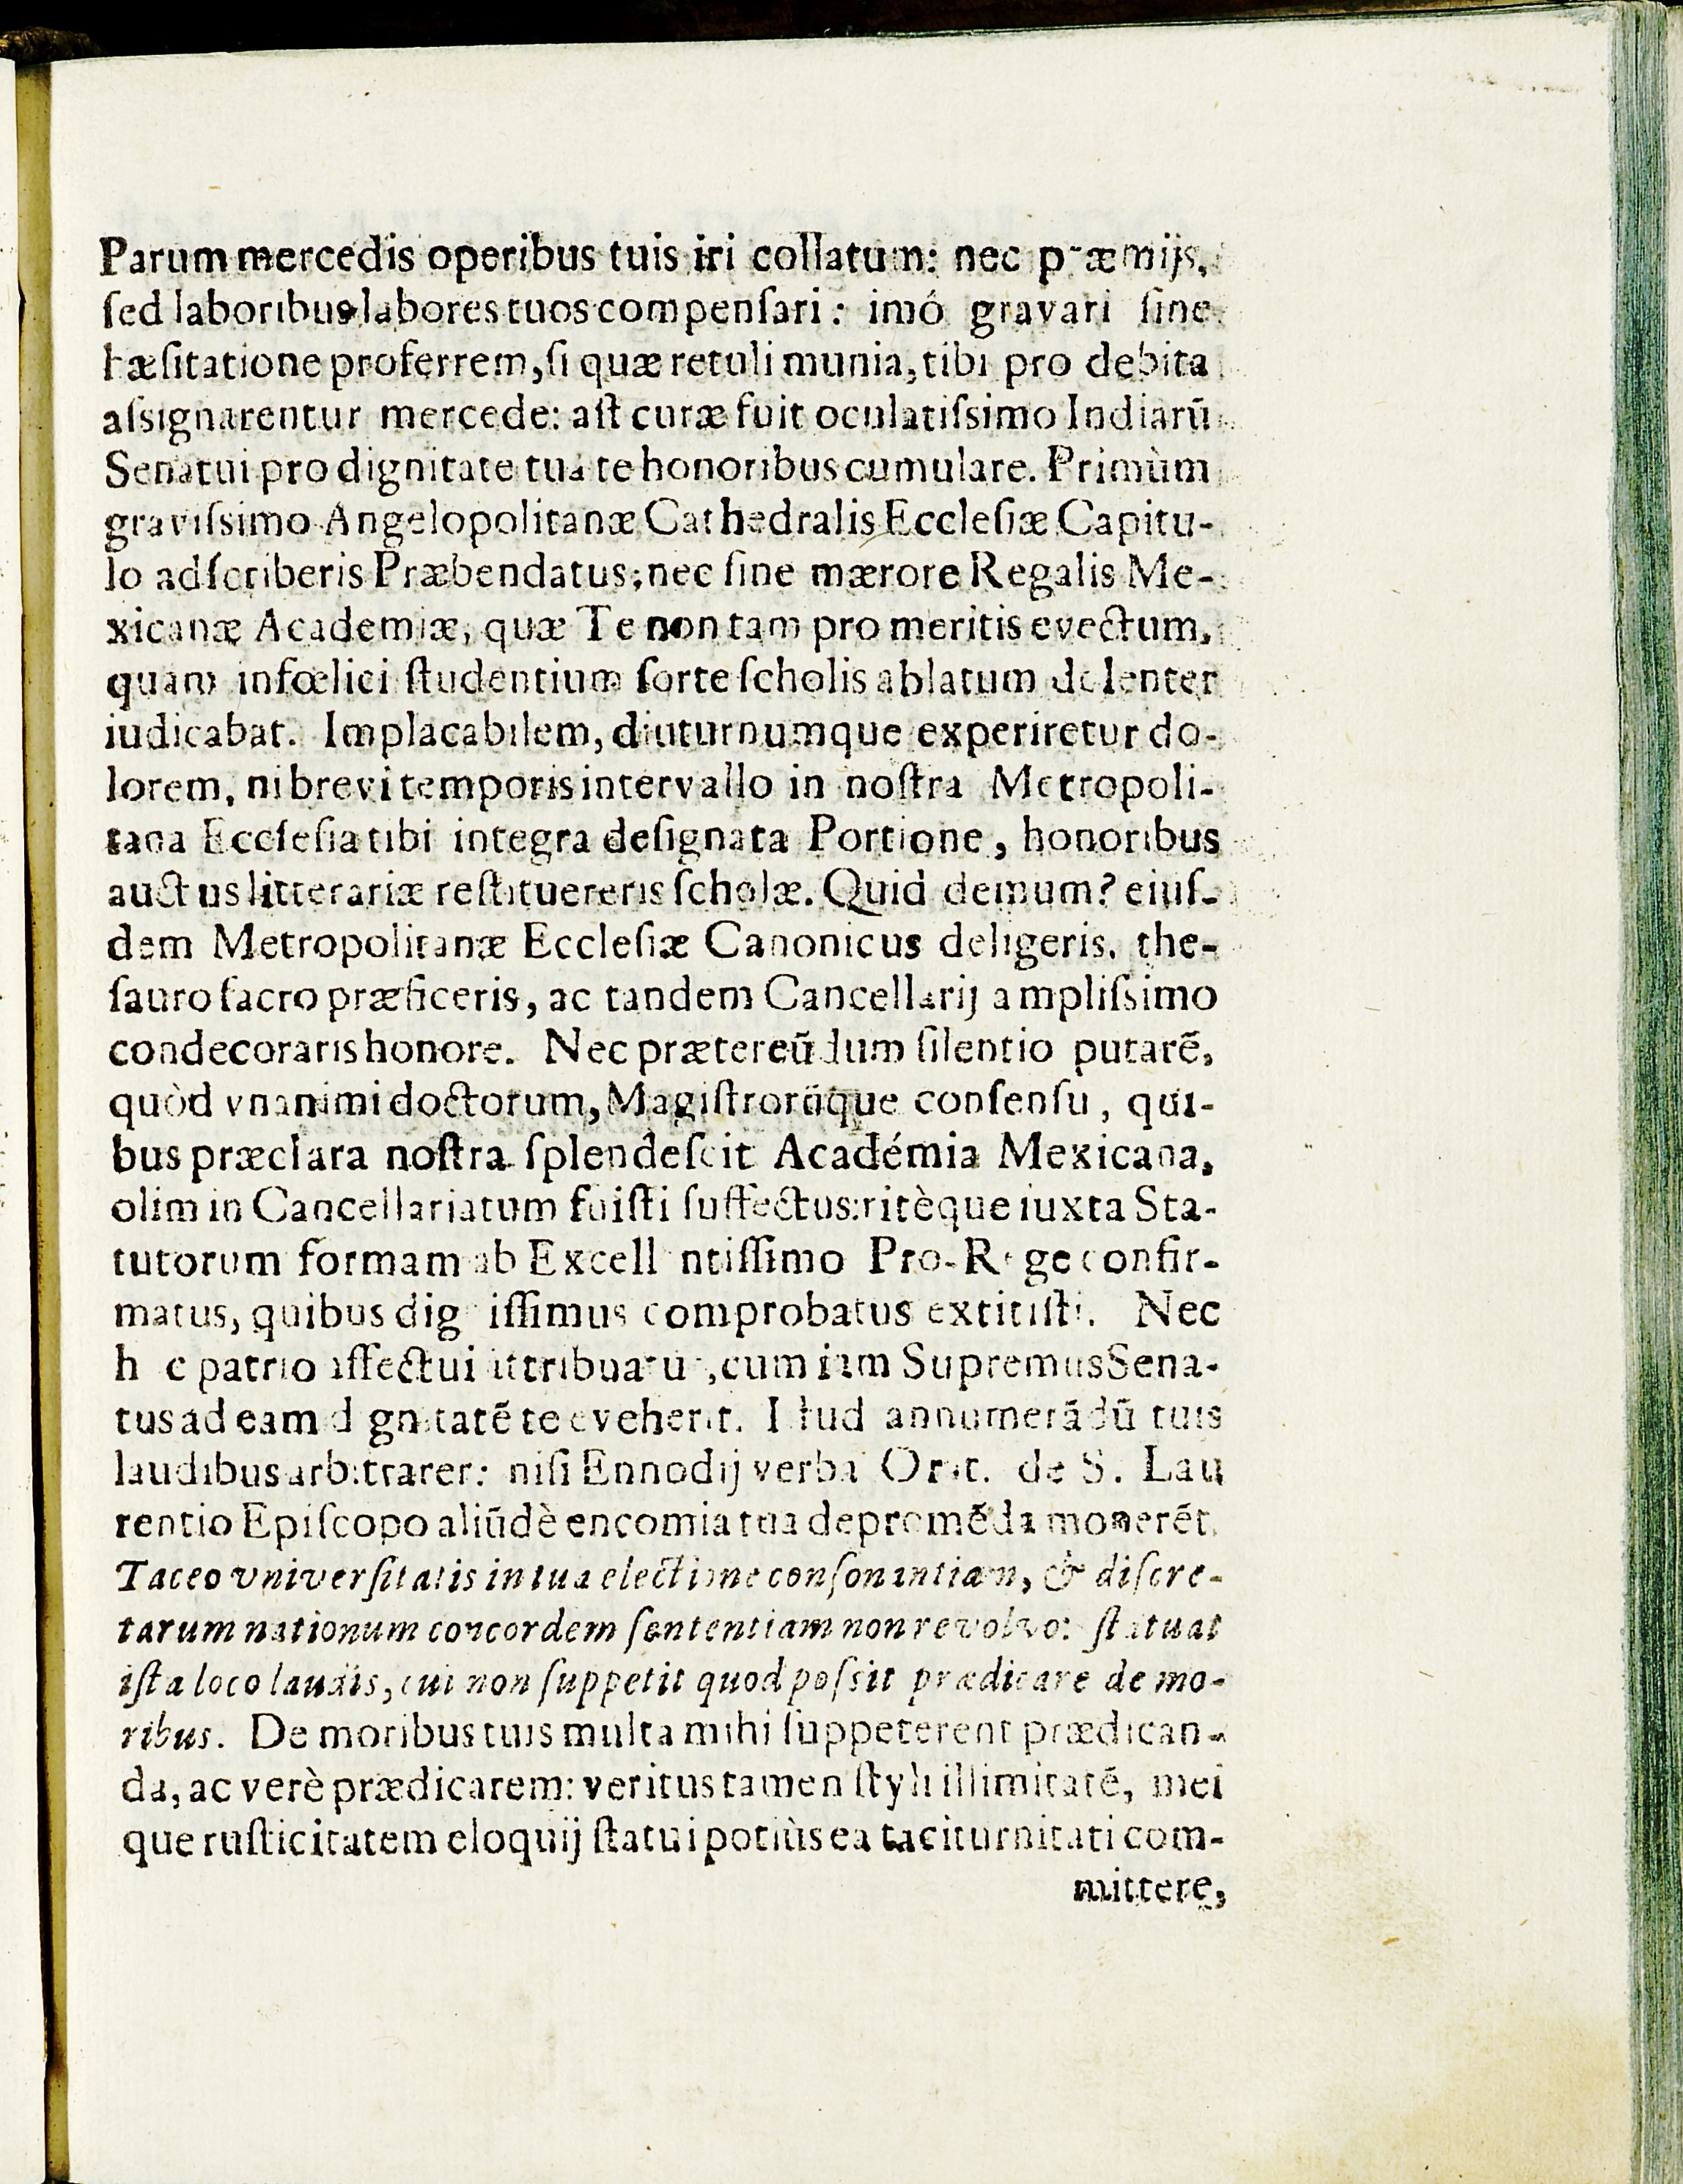 Parum mercedis operibus tuis iri collatum: nec præmijs,
ſed laboribus labores tuos compenſari: imó gravari ſine
hæſitatione proferrem, ſi quæ retuli munia, tibi pro debita
aſsignarentur mercede: aſt curæ fuit oculatiſsimo Indiarū
Senatui pro dignitate tua te honoribus cumulare. Primùm
graviſsimo Angelopolitanæ Cathedralis Eccleſiæ Capitu-
lo adſcriberis Præbendatus; nec ſine mærore Regalis Me-
xicanæ Academiæ, quæ Te non tam pro meritis evectum,
quam infœlici ſtudentium ſorte ſcholis ablatum dolenter
iudicabat. Implacabilem, diuturnumque experiretur do-
lorem, ni brevi temporis intervallo in noſtra Metropoli-
tana Eccleſia tibi integra deſignata Portione, honoribus
auctus litterariæ reſtituereris ſcholæ. Quid demum? eiuſ-
dem Metropolitanæ Eccleſiæ Canonicus deligeris, the-
ſauro ſacro præficeris, ac tandem Cancellarij ampliſsimo
condecoraris honore. Nec prætereūdum ſilentio putarē,
quòd vnanimi doctorum, Magiſtrorūque conſenſu, qui-
bus præclara noſtra ſplendeſcit Académia Mexicana,
olim in Cancellariatum fuiſti ſuffectus: ritèque iuxta Sta-
tutorum formam ab Excellentiſſimo Pro-Rege confir-
matus, quibus digniſſimus comprobatus extitiſti. Nec
hoc patrio affectui attribuatur, cum iam Supremus Sena-
tus ad eam dignitatē te eveherit. Iſtud annumerādū tuis
laudibus arbitrarer: niſi Ennodij verba Orat. de S. Lau
rentio Epiſcopo aliūdè encomia tua depromēda monerēt.
Taceo vniverſitatis in tua electione conſonantiam, & diſcre-
tarum nationum concordem ſententiam non revolvo: ſtatuat
iſta loco laudis, cui non ſuppetit quod poſsit prædicare de mo-
ribus. De moribus tuis multa mihi ſuppeterent prædican-
da, ac verè prædicarem: veritus tamen ſtyli illimitatē, mei
que ruſticitatem eloquij ſtatui potiùs ea taciturnitati com-
mittere,